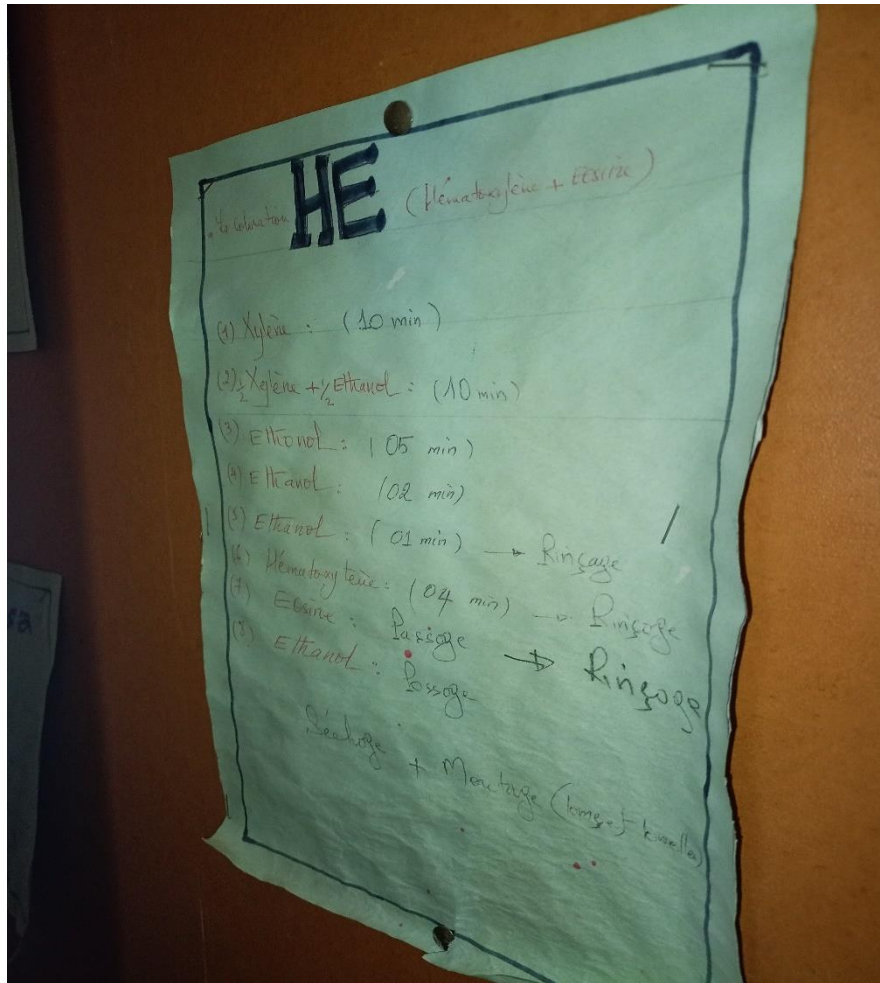 . La coloration HE (Hématoxylène + Eosine)
(1) Xylène : (10 min)
(2) 1/2 Xylène + 1/2 Ethanol : (10 min)
(3) Ethanol : (05 min)
(4) Ethanol : (02 min)
(5) Ethanol : (01 min) → Rinçage
(6) Hématoxylène : (04 min) → Rinçage
(7) Eosine : Passage → Rinçage
(8) Ethanol : Passage
Séchage + Montage (lame et lamelles)